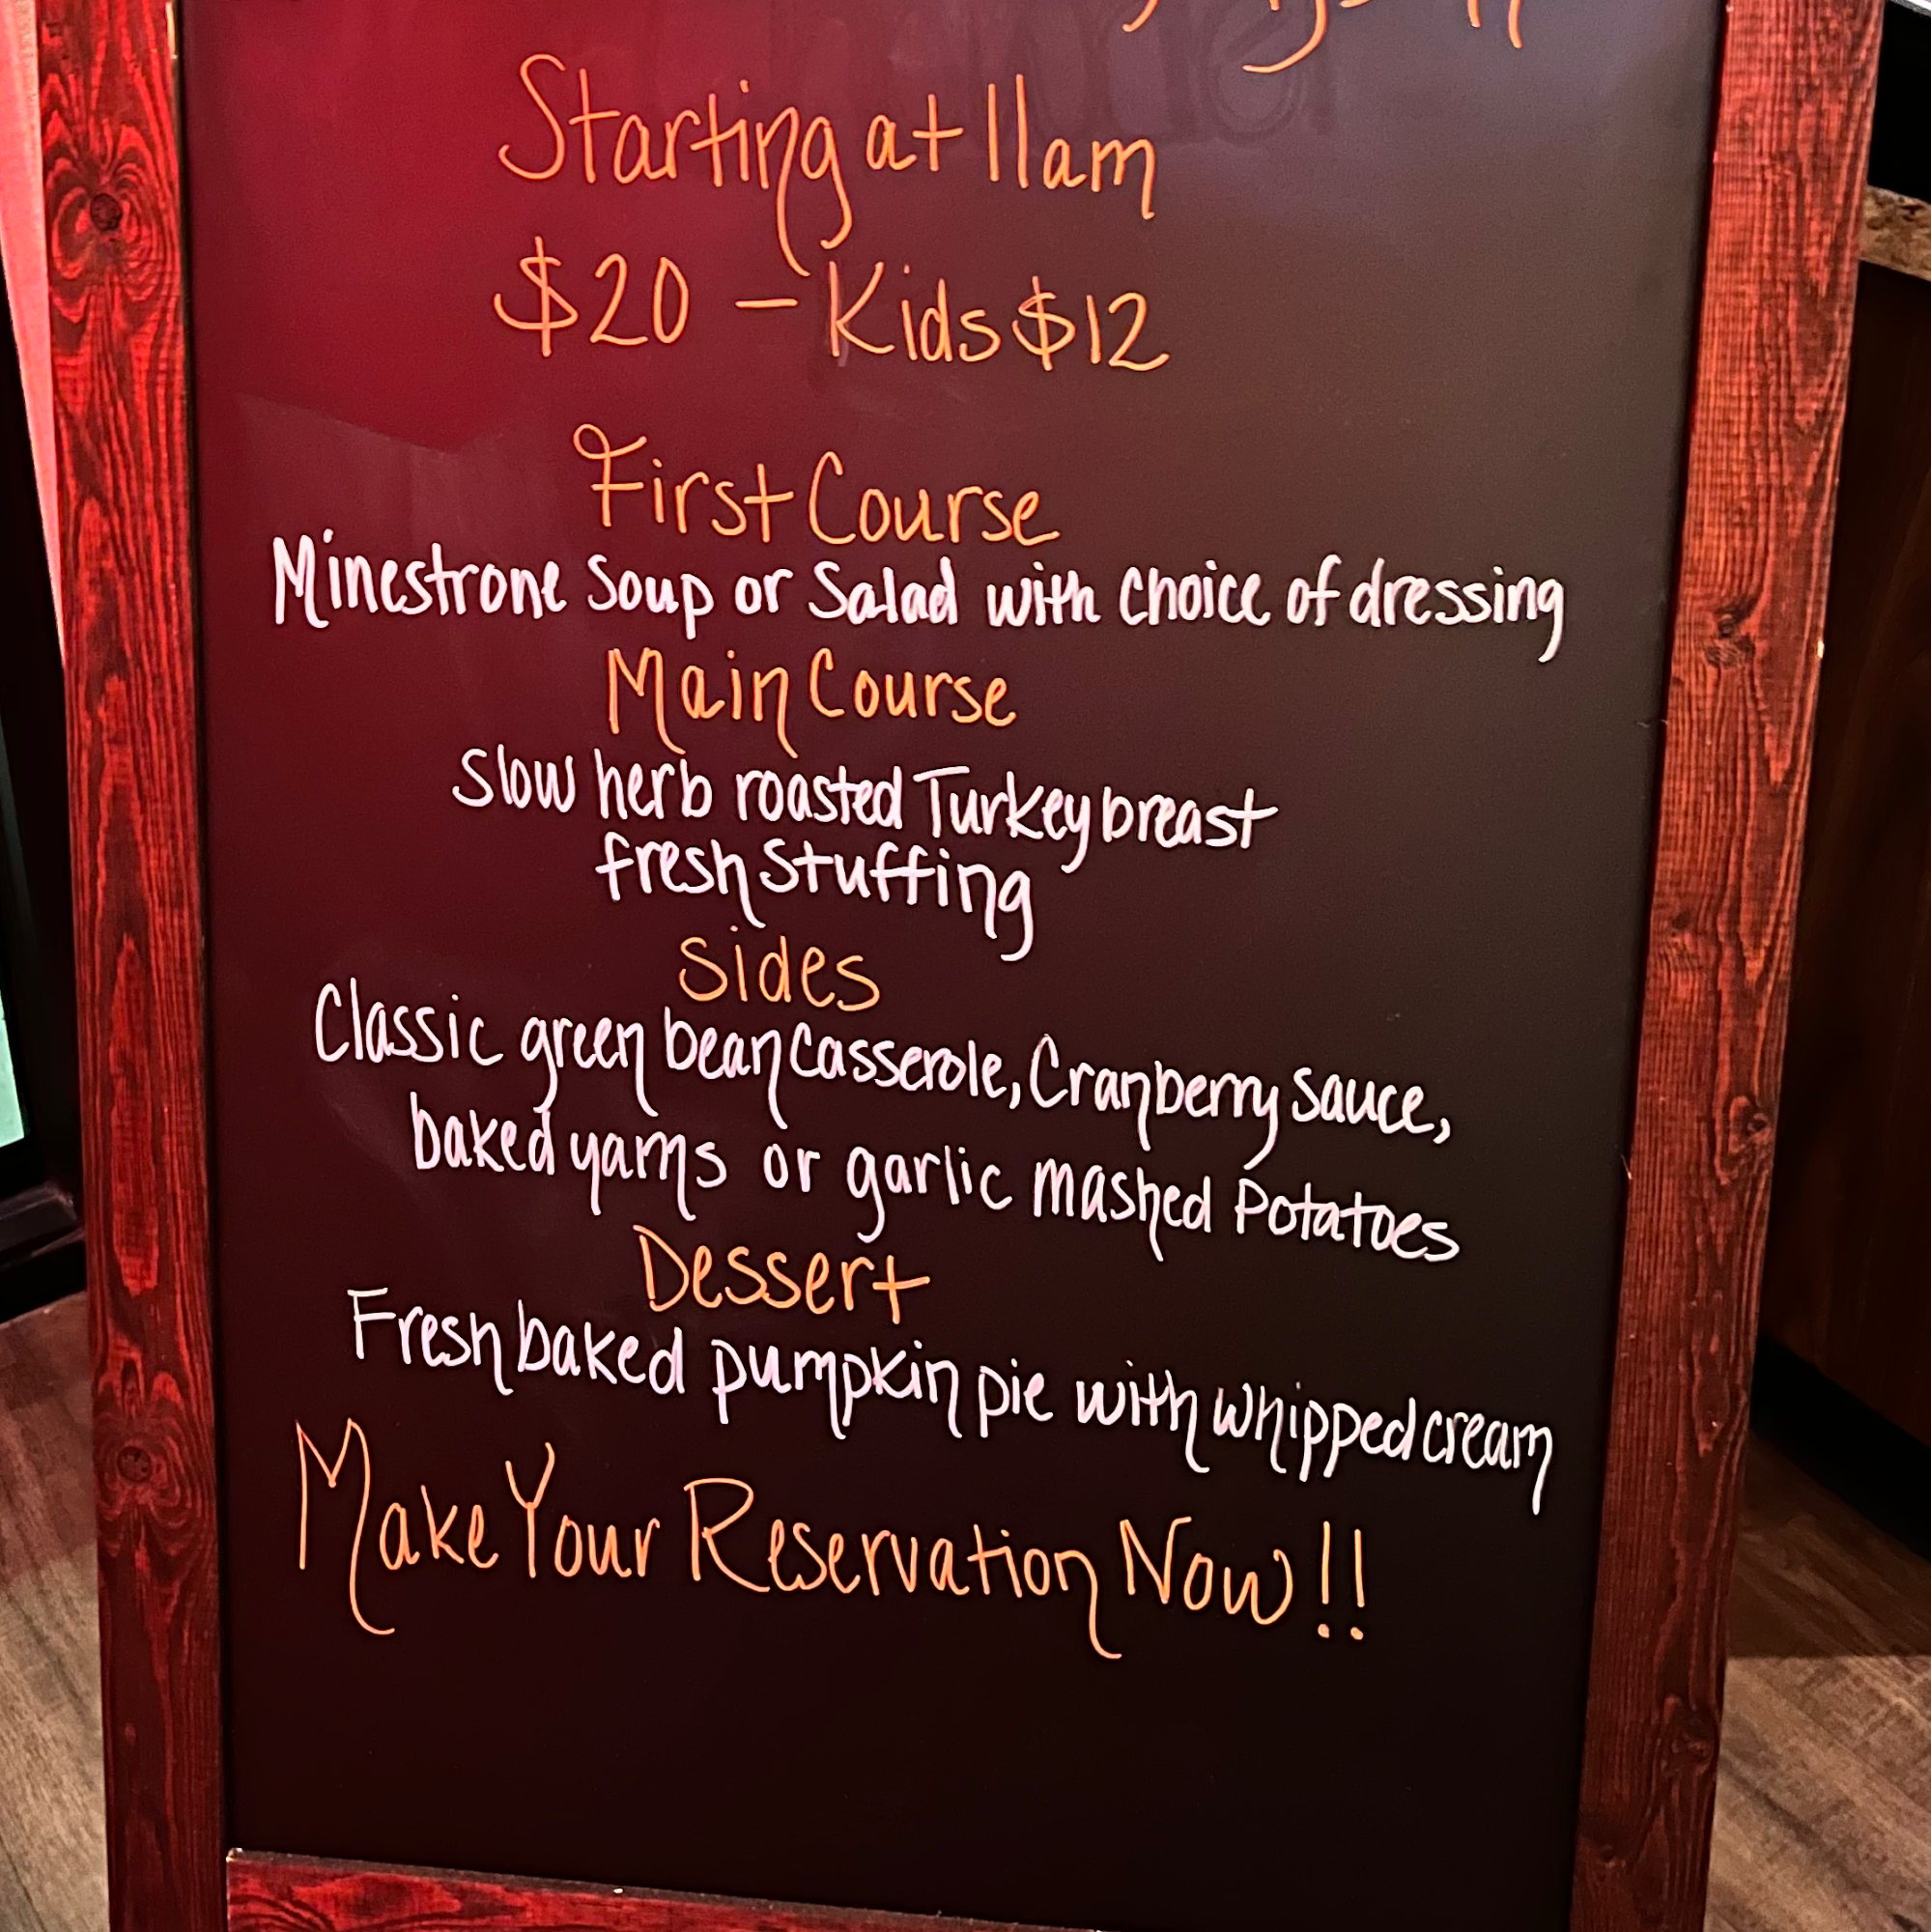 Starting at 11am
$20 - Kids $12
First Course
Minestrone Soup or Salad with choice of dressing
Main Course
Slow herb roasted Turkey breast
fresh stuffing
Sides
Classic green bean casserole, Cranberry sauce,
baked yams or garlic mashed Potatoes
Dessert
Fresh baked pumpkin pie with whipped cream
Make Your Reservation Now!!